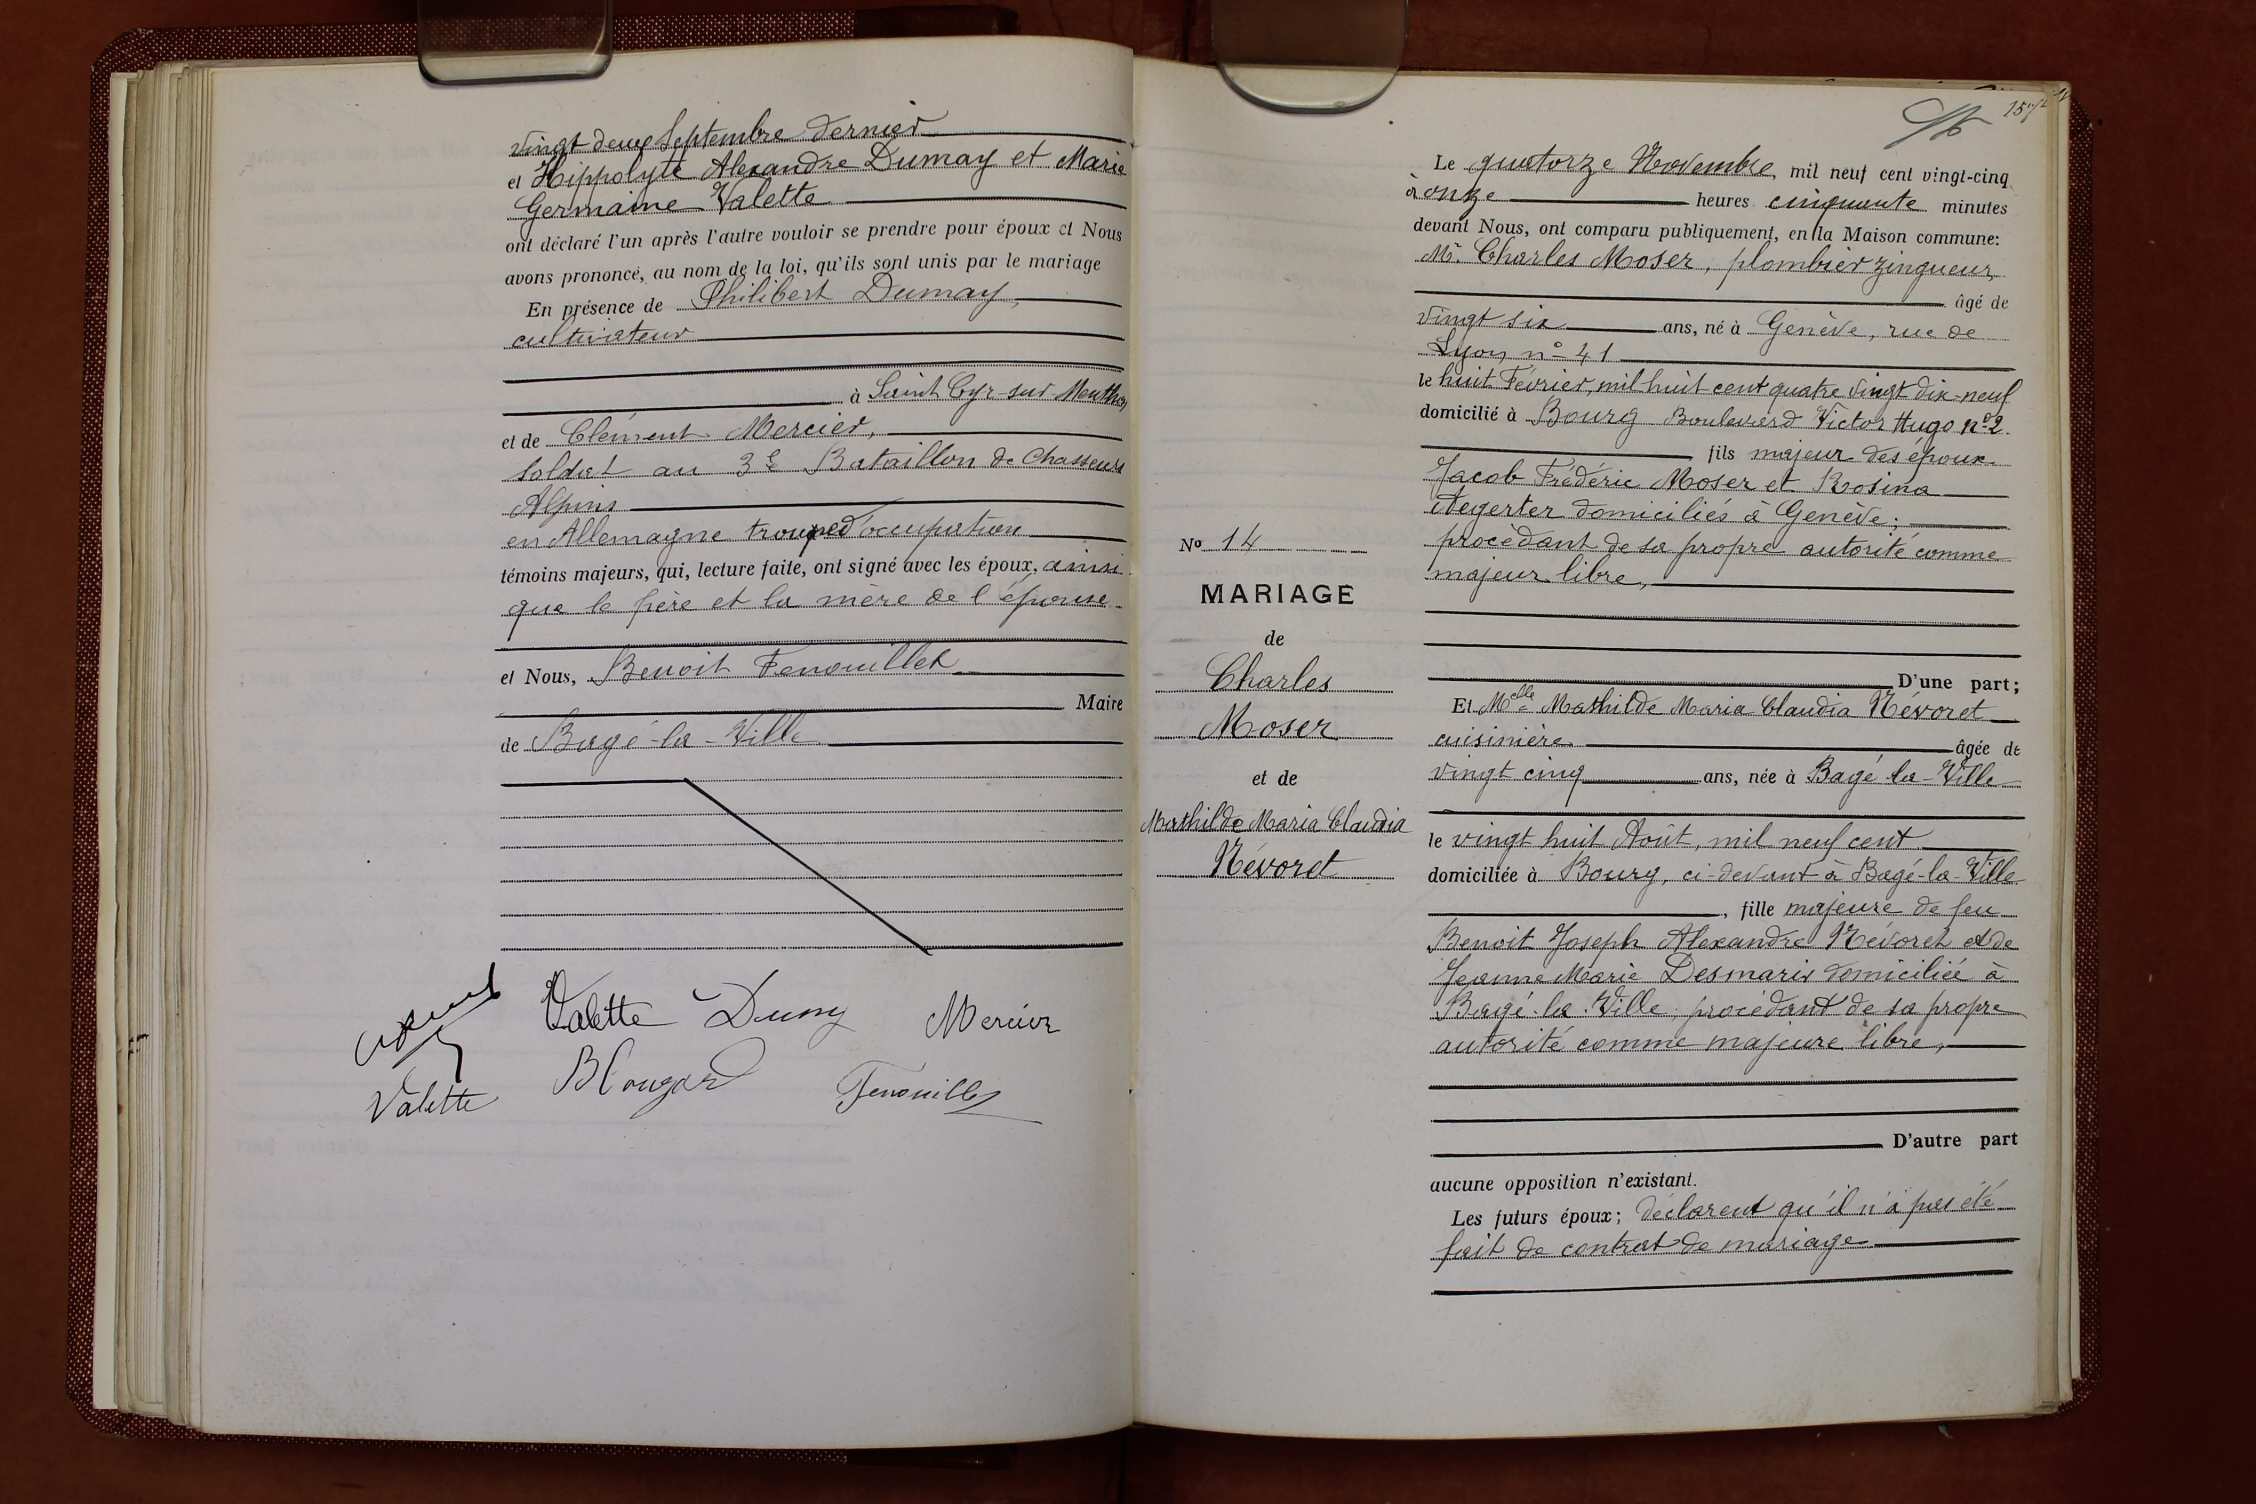 vingt deux Septembre dernier
et Hippolyte Alexandre Dumay et Marie
Germaine Valette
ont déclaré l'un après l'autre vouloir se prendre pour époux et Nous
avons prononcé, au nom de la loi, qu'ils sont unis par le mariage
En présence de Philibert Dumay,
cultivateur
à Saint Cyr-sur-Menthon
et de Clément Mercier,
soldat au 3e Bataillon de Chasseurs
Alpins
en Allemagne troupe d'occupation
témoins majeurs, qui, lecture faite, ont signé avec les époux, ainsi
que le père et la mère de l'épouse
et Nous, Benoit Fenouillet
Maire
de Bagé-la-Ville
Valette Dumay Mercier
Valette Fenouillet
15
Le quatorze Novembre mil neuf cent vingt-cinq
à onze heures cinquante minutes
devant Nous, ont comparu publiquement, en la Maison commune:
Mr. Charles Moser, plombier zingueur,
âgé de
vingt six ans, né à Genève, rue de
Lyon n° 41
le huit Février, mil huit cent quatre vingt dix-neuf
domicilié à Bourg Boulevard Victor Hugo n° 2.
fils majeur des époux
Jacob Frédéric Moser et Rosina
Aegerter domiciliés à Genève;
procèdant de sa propre autorité comme
majeur libre,
D'une part;
Et Melle Mathilde Maria Claudia Névoret
cuisinière âgée de
vingt cinq ans, née à Bagé-la-Ville
le vingt huit Août, mil neuf cent
domiciliée à Bourg, ci-devant à Bagé-la-Ville
, fille majeure de feu
Benoit Joseph Alexandre Névoret et de
Jeanne Marie Desmaris domiciliée à
Bagé-la-Ville procédant de sa propre
autorité comme majeure libre,
D'autre part
aucune opposition n'existant.
Les futurs époux; déclarent qu'il n'a pas été
fait de contrat de mariage
No 14
MARIAGE
de
Charles
Moser
et de
Mathilde Maria Claudia
Névoret